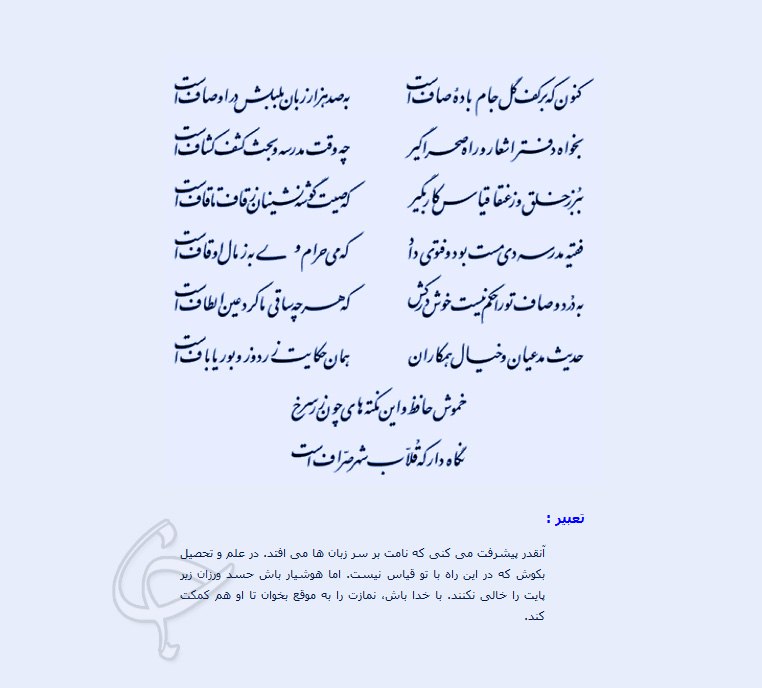 کنون که بر کف گل جام باده صاف است به صد هزار زبان بلبلش در اوصاف است
بخواه دفتر اشعار و راه صحرا گیر چه وقت مدرسه و بحث کشف کشاف است
ببر ز خلق و ز عنقا قیاس کار بگیر که صیت گوشه نشینان ز قاف تا قاف است
فقیه مدرسه دی مست بود و فتوی داد که می حرام ولی به ز مال اوقاف است
به درد و صاف تو را حکم نیست خوش درکش که هر چه ساقی ما کرد عین الطاف است
حدیث مدعیان و خیال همکاران همان حکایت زردوز و بوریاباف است
خموش حافظ و این نکته های چون زر سرخ
نگاه دار که قلّاب شهر صرّاف است
تعبیر :
آنقدر پیشرفت می کنی که نامت بر سر زبان ها می افتد. در علم و تحصیل
بکوش که در این راه با تو قیاس نیست. اما هوشیار باش حسد ورزان زیر
پایت را خالی نکنند. با خدا باش، نمازت را به موقع بخوان تا او هم کمکت
کند.